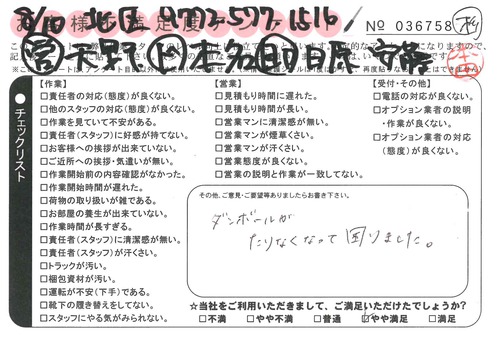 8/10 北区 4773-577-1516
No 036758
チェックリスト
【作業】
□責任者の対応(態度)が良くない。
□他のスタッフの対応(態度)が良くない。
□作業を見ていて不安がある。
□責任者(スタッフ)に好感が持てない。
□お客様への挨拶が出来ていない。
□ご近所への挨拶・気遣いが無い。
□作業開始前の内容確認がなかった。
□作業開始時間が遅れた。
□荷物の取り扱いが雑である。
□お部屋の養生が出来ていない。
□作業時間が長すぎる。
□責任者(スタッフ)に清潔感が無い。
□責任者(スタッフ)が汗くさい。
□トラックが汚い。
□梱包資材が汚い。
□運転が不安(下手)である。
□靴下の履き替えをしてない。
□スタッフにやる気がみられない。
【営業】
□見積もり時間に遅れた。
□見積もり時間が長い。
□営業マンに清潔感が無い。
□営業マンが煙草くさい。
□営業マンが汗くさい。
□営業態度が良くない。
□営業の説明と作業が一致してない。
【受付・その他】
□電話の対応が良くない。
□オプション業者の説明
・作業が良くない。
□オプション業者の対応
(態度)が良くない。
その他、ご意見・ご要望等ありましたらお書き下さい。
ダンボールが
たりなくなって困りました。
☆当社をご利用いただきまして、ご満足いただけたでしょうか？
□不満 □やや不満 □普通 ☑やや満足 □満足